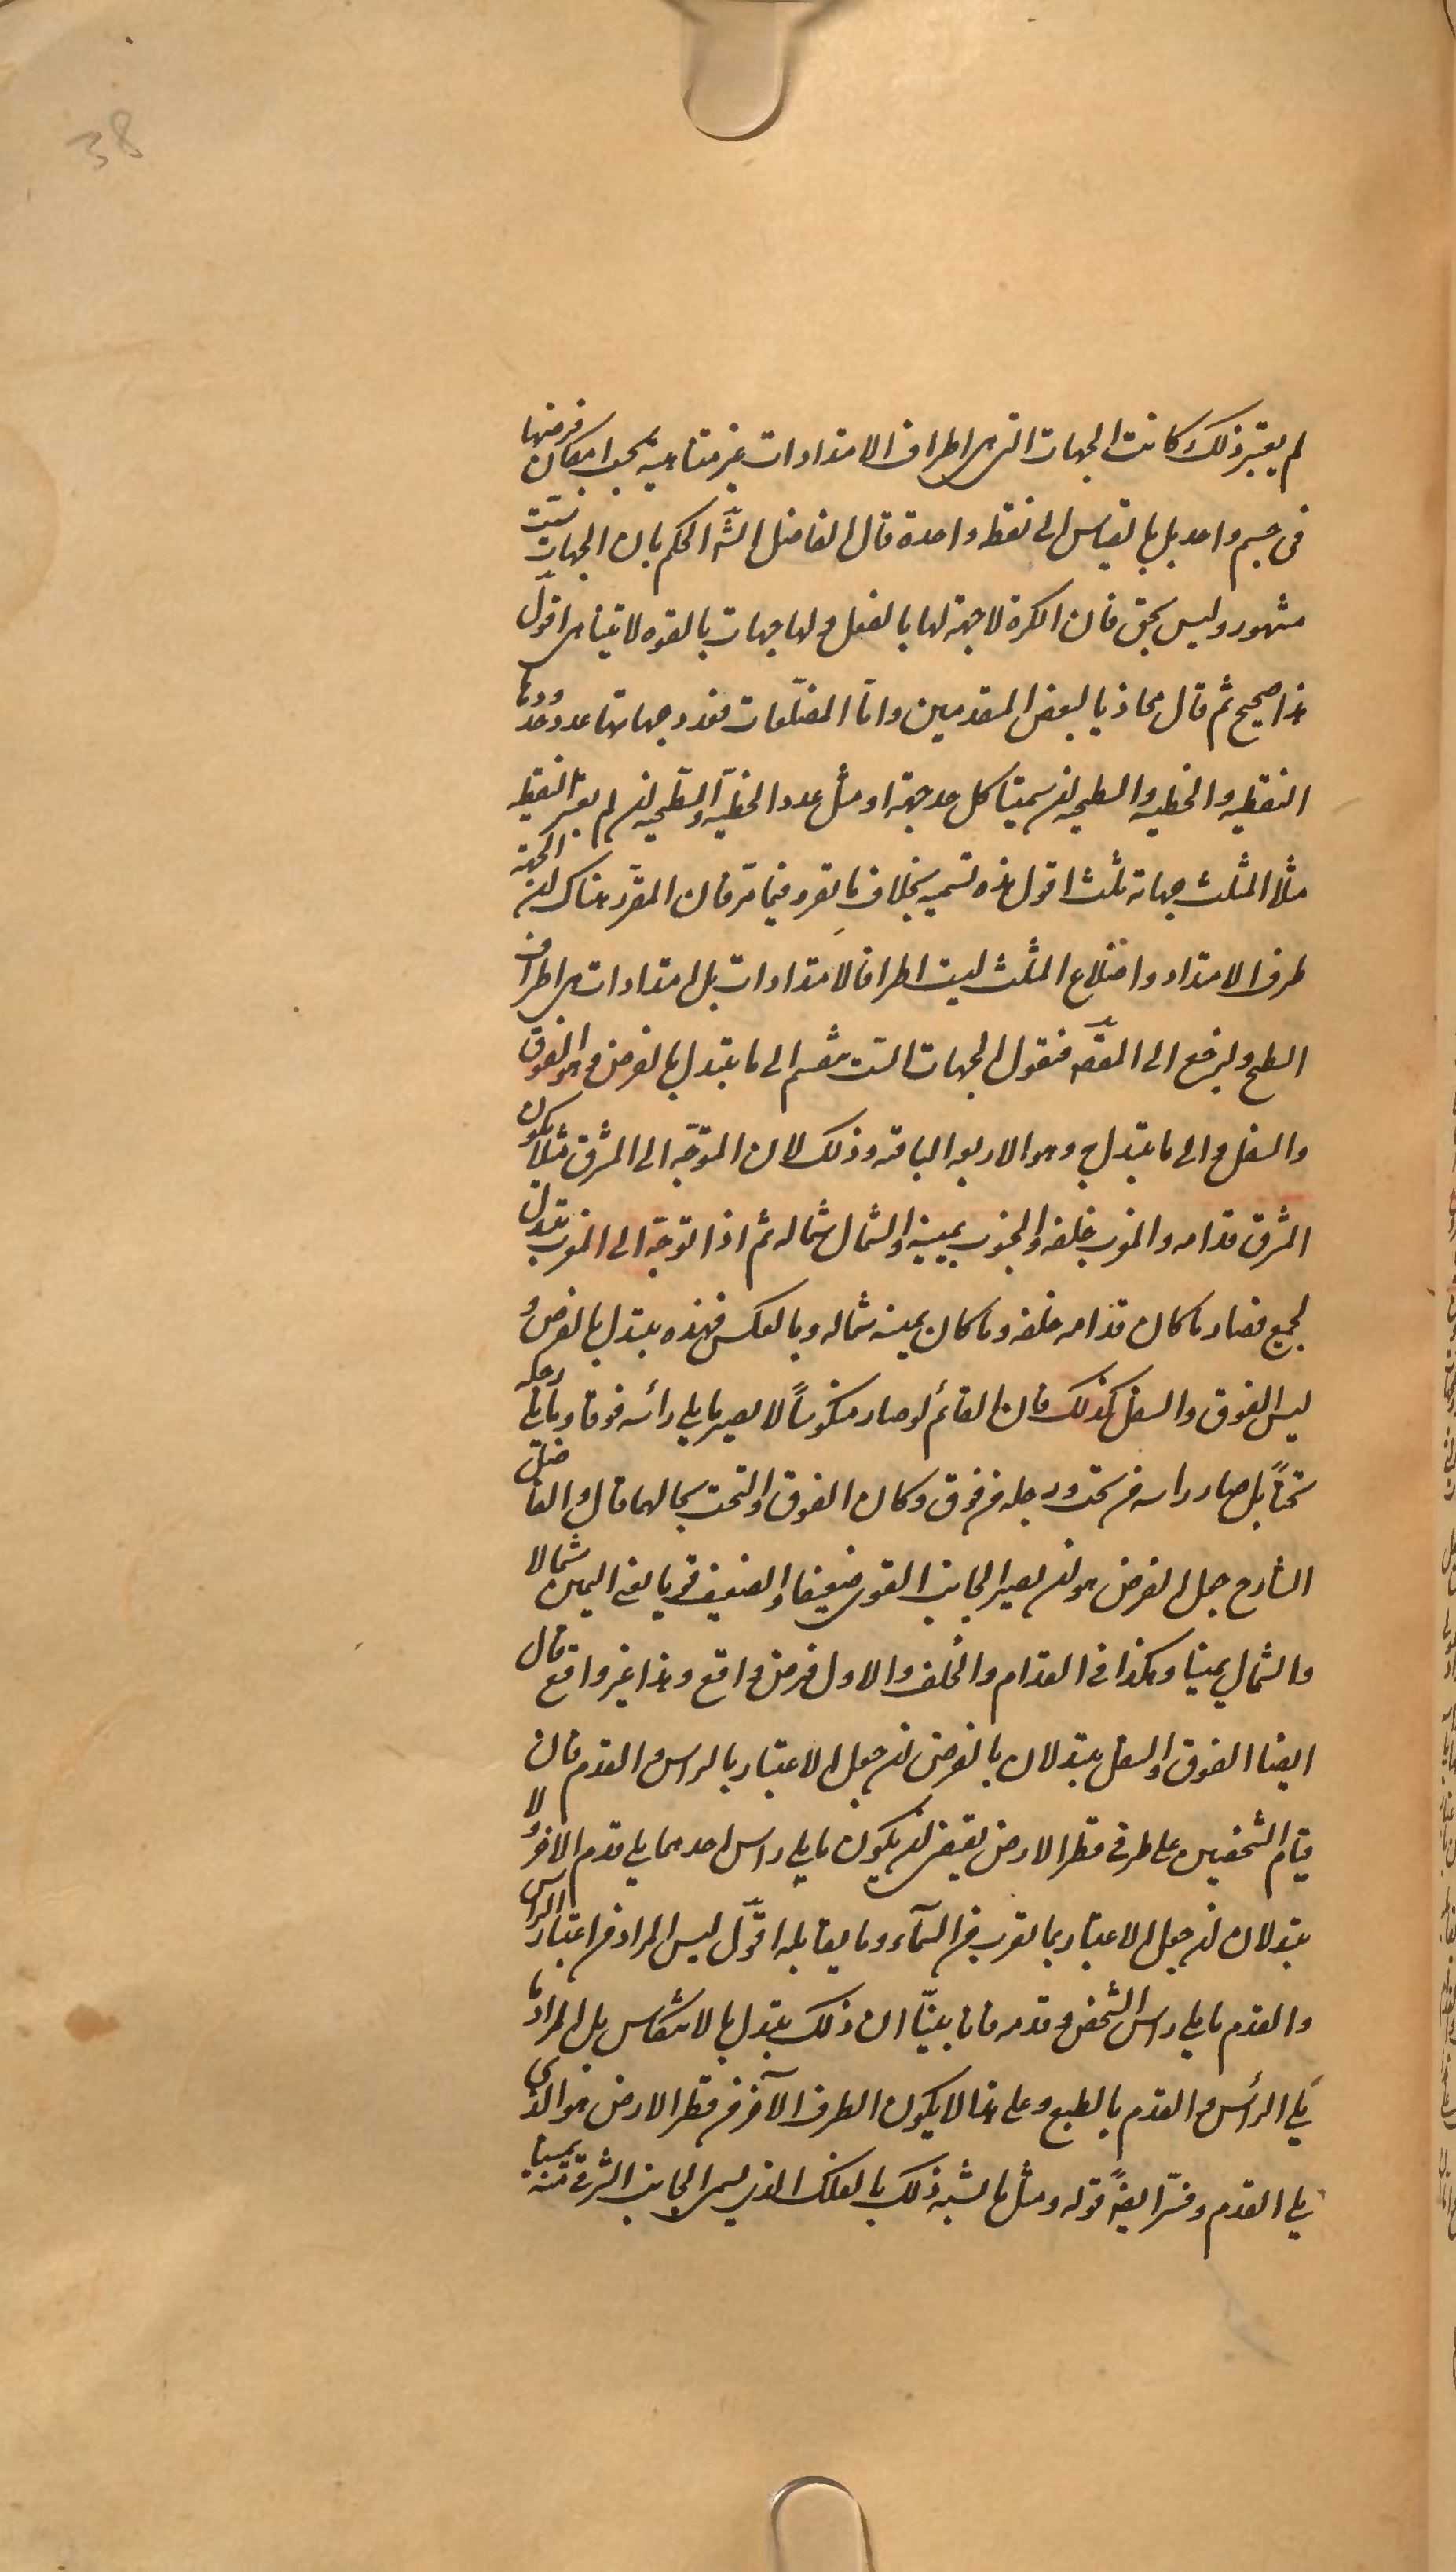 38
لم يعتبر ذلك كانت الجهات التى هى اطراف الامتدادات غير متناهية بحسب امكان فرضها
فى جسم واحد بل بالقياس الى نقطة واحدة قال الفاضل الشّـ الحكم بان الجهات ستّ
مشهور وليس بحق فان الكرة لا جهة لها بالفعل ولها جهات بالقوه لا يتناهى اقول
هذا صحيح ثم قال محاذيا لبعض المتقدمين وامّا المضلّعات فعدد جهاتها عدد حدودها
النقطيه والخطيه والسطحيه ان سمينا كل حد جهة او مثل عدد الخطيّة والسّطحيه ان لم يعتبر النقطيه
مثلا المثلث جهاته ثلث اقول هذه تسميه بخلاف ما تقرر فيما مرّ فان المقرّر هناك ان الجهة
طرف الامتداد واضلاع المثلث ليست اطرافا لامتدادات بل امتدادات هى اطراف
السطح ولنرجع الى المقصـ فنقول الجهات الست ينقسم الى ما يتبدل بالفرض وهو الفوق
والسفل والى ما يتبدل به وهو الاربعه الباقيه وذلك لان المتوجّه الى المشرق مثلا يكون
المشرق قدامه والمغرب خلفه والجنوب يمينه والشمال شماله ثم اذا توجّه الى المغرب يتبدل
لجميع فصار ما كان قدامه خلفه وما كان يمينه شماله وبالعكس فهذه يتبدل بالفرض و
ليس الفوق والسفل كذلك فان القائم لو صار منكوساً لا يصير ما يلى رأسه فوقا وما يلى رجله
تحتاً بل صار راسه من تحت ورجله من فوق وكان الفوق والتحت بحالهما قال والفاضل
الشارح جعل الفرض هو ان يصير الجانب القوى ضعيفا والضعيف قويا يعنى اليمين شمالا
والشمال يمينا وهكذا فى القدام والخلف والاول فرض واقع وهذا غير واقع قال
ايضا الفوق والسفل يتبدلان بالفرض ان جعل الاعتبار بالراس والقدم فان
قيام الشخصين على طرفى قطر الارض يقتضى ان يكون ما يلى راس احدهما يلى قدم الاخر ولا
يتبدلان ان جعل الاعتبار بما يقرب من السّمآء وما يقابله اقول ليس المراد من اعتبار الراس
والقدم ما يلى راس الشخص وقدمه فانا بينّا ان ذلك يتبدل بالانتكاس بل المراد ما
يلى الرأس والقدم بالطبع وعلى هذا لا يكون الطرف الآخر من قطر الارض هو الذى
يلى القدم وفسّر ايضاً قوله ومثل ما يشبه ذلك بالفلك الذى يسمى الجانب الشرقى منه يمينا